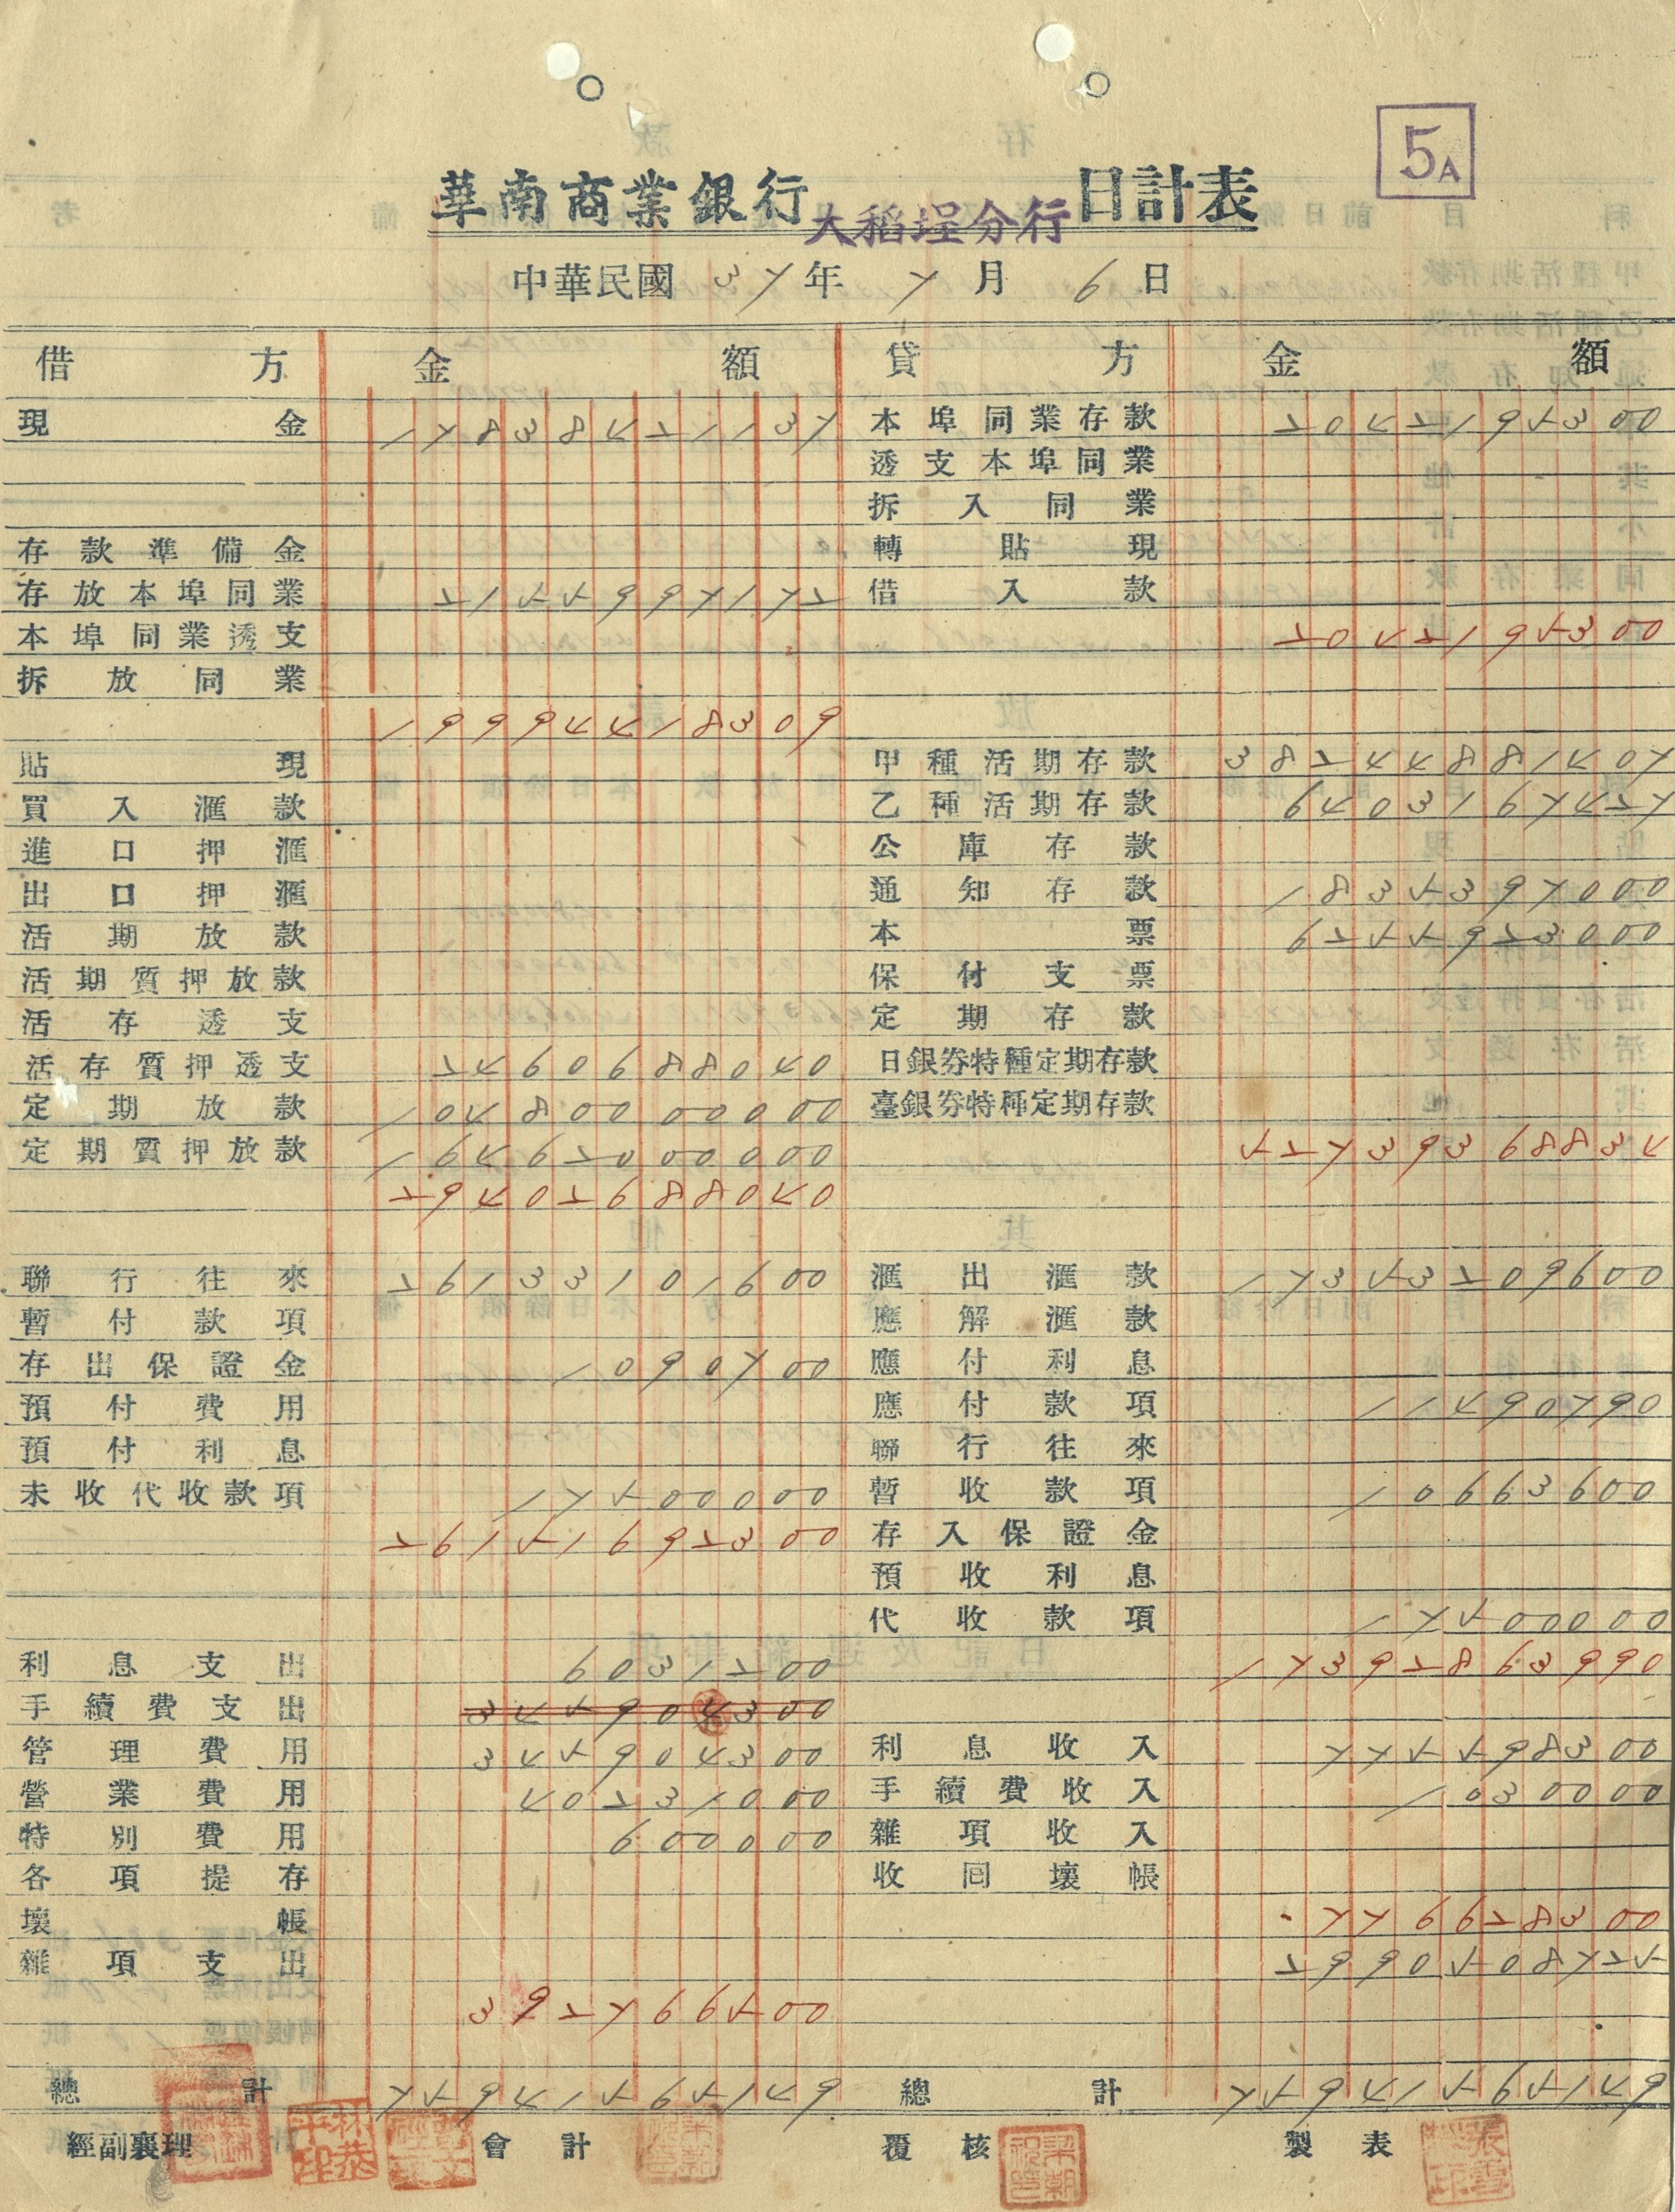 5A
華南商業銀行 大稻埕分行 日計表
中華民國 37 年 7 月 6 日
借方 金額 貸方 金額
現金 17838421137 本埠同業存款 2042195300
透支本埠同業
拆入同業
存款準備金 轉貼現
存放本埠同業 2155997172 借入款
本埠同業透支 2042195300
拆放同業
19994418309
貼現 甲種活期存款 38244881407
買入滙款 乙種活期存款 6403167427
進口押滙 公庫存款
出口押滙 通知存款 1835397000
活期放款 本票 6255923000
活期質押放款 保付支票
活存透支 定期存款
活存質押透支 2460688040 日銀券特種定期存款
定期放款 10480000000 臺銀券特種定期存款
定期質押放款 16462000000 52739368834
29402688040
聯行往來 26133101600 滙出滙款 17353209600
暫付款項 應解滙款
存出保證金 1090700 應付利息
預付費用 應付款項 11490790
預付利息 聯行往來
未收代收款項 17500000 暫收款項 10663600
26151692300 存入保證金
預收利息
代收款項 17500000
利息支出 6031200 17392863990
手續費支出 345904300
管理費用 345904300 利息收入 775598300
營業費用 40231000 手續費收入 1030000
特別費用 600000 雜項收入
各項提存 收回壞帳
壞帳 776628300
雜項支出 2990508725
392766500
總計 75941565149 總計 75941565149
經副襄理 林恭平印 會計 覆核 製表